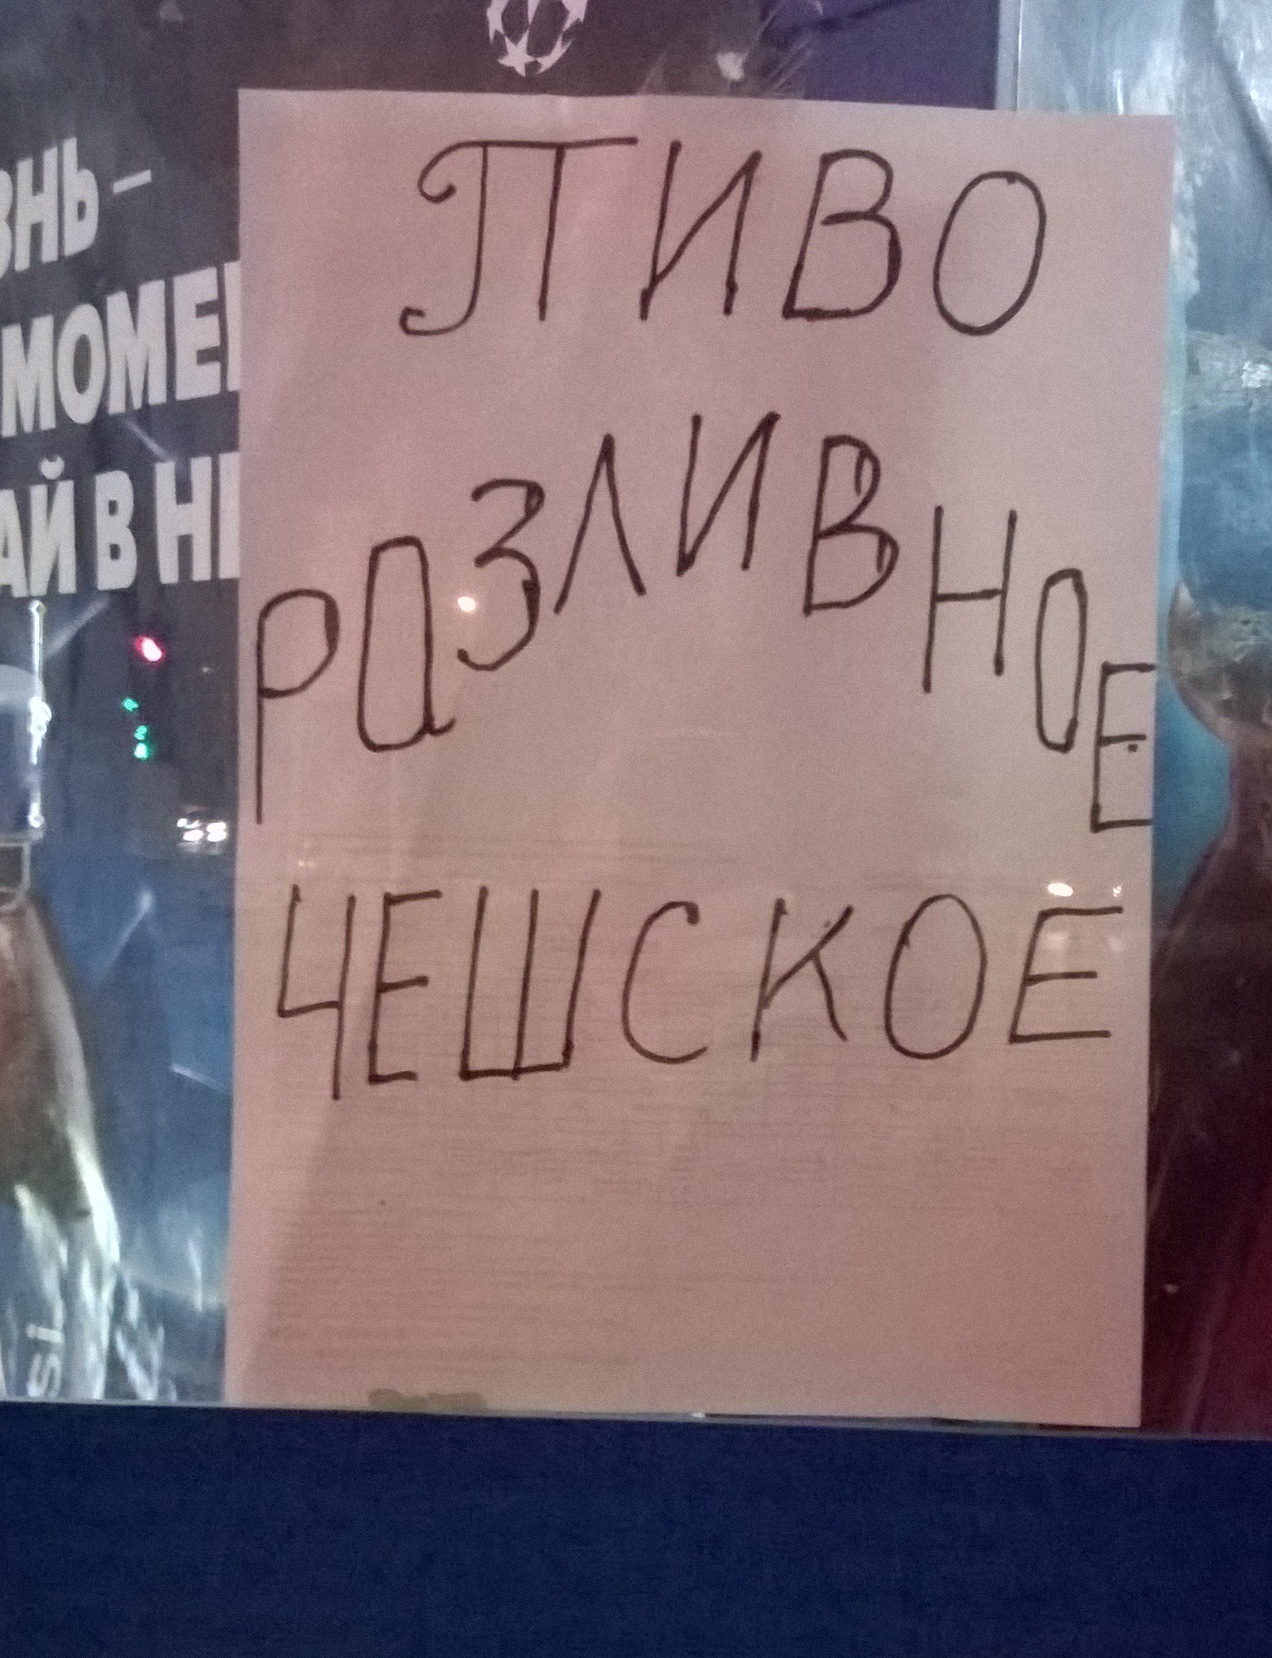 ПИВО
РАЗЛИВНОЕ
ЧЕШСКОЕ
МОМЕ
АЙ В Н
si